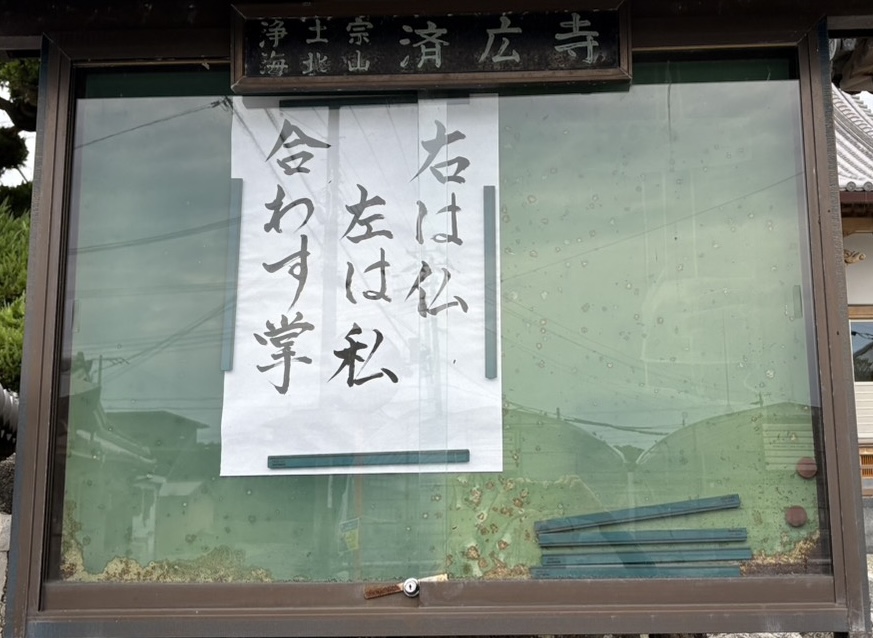 浄土宗
海北山
済広寺
右は仏
左は私
合わす掌